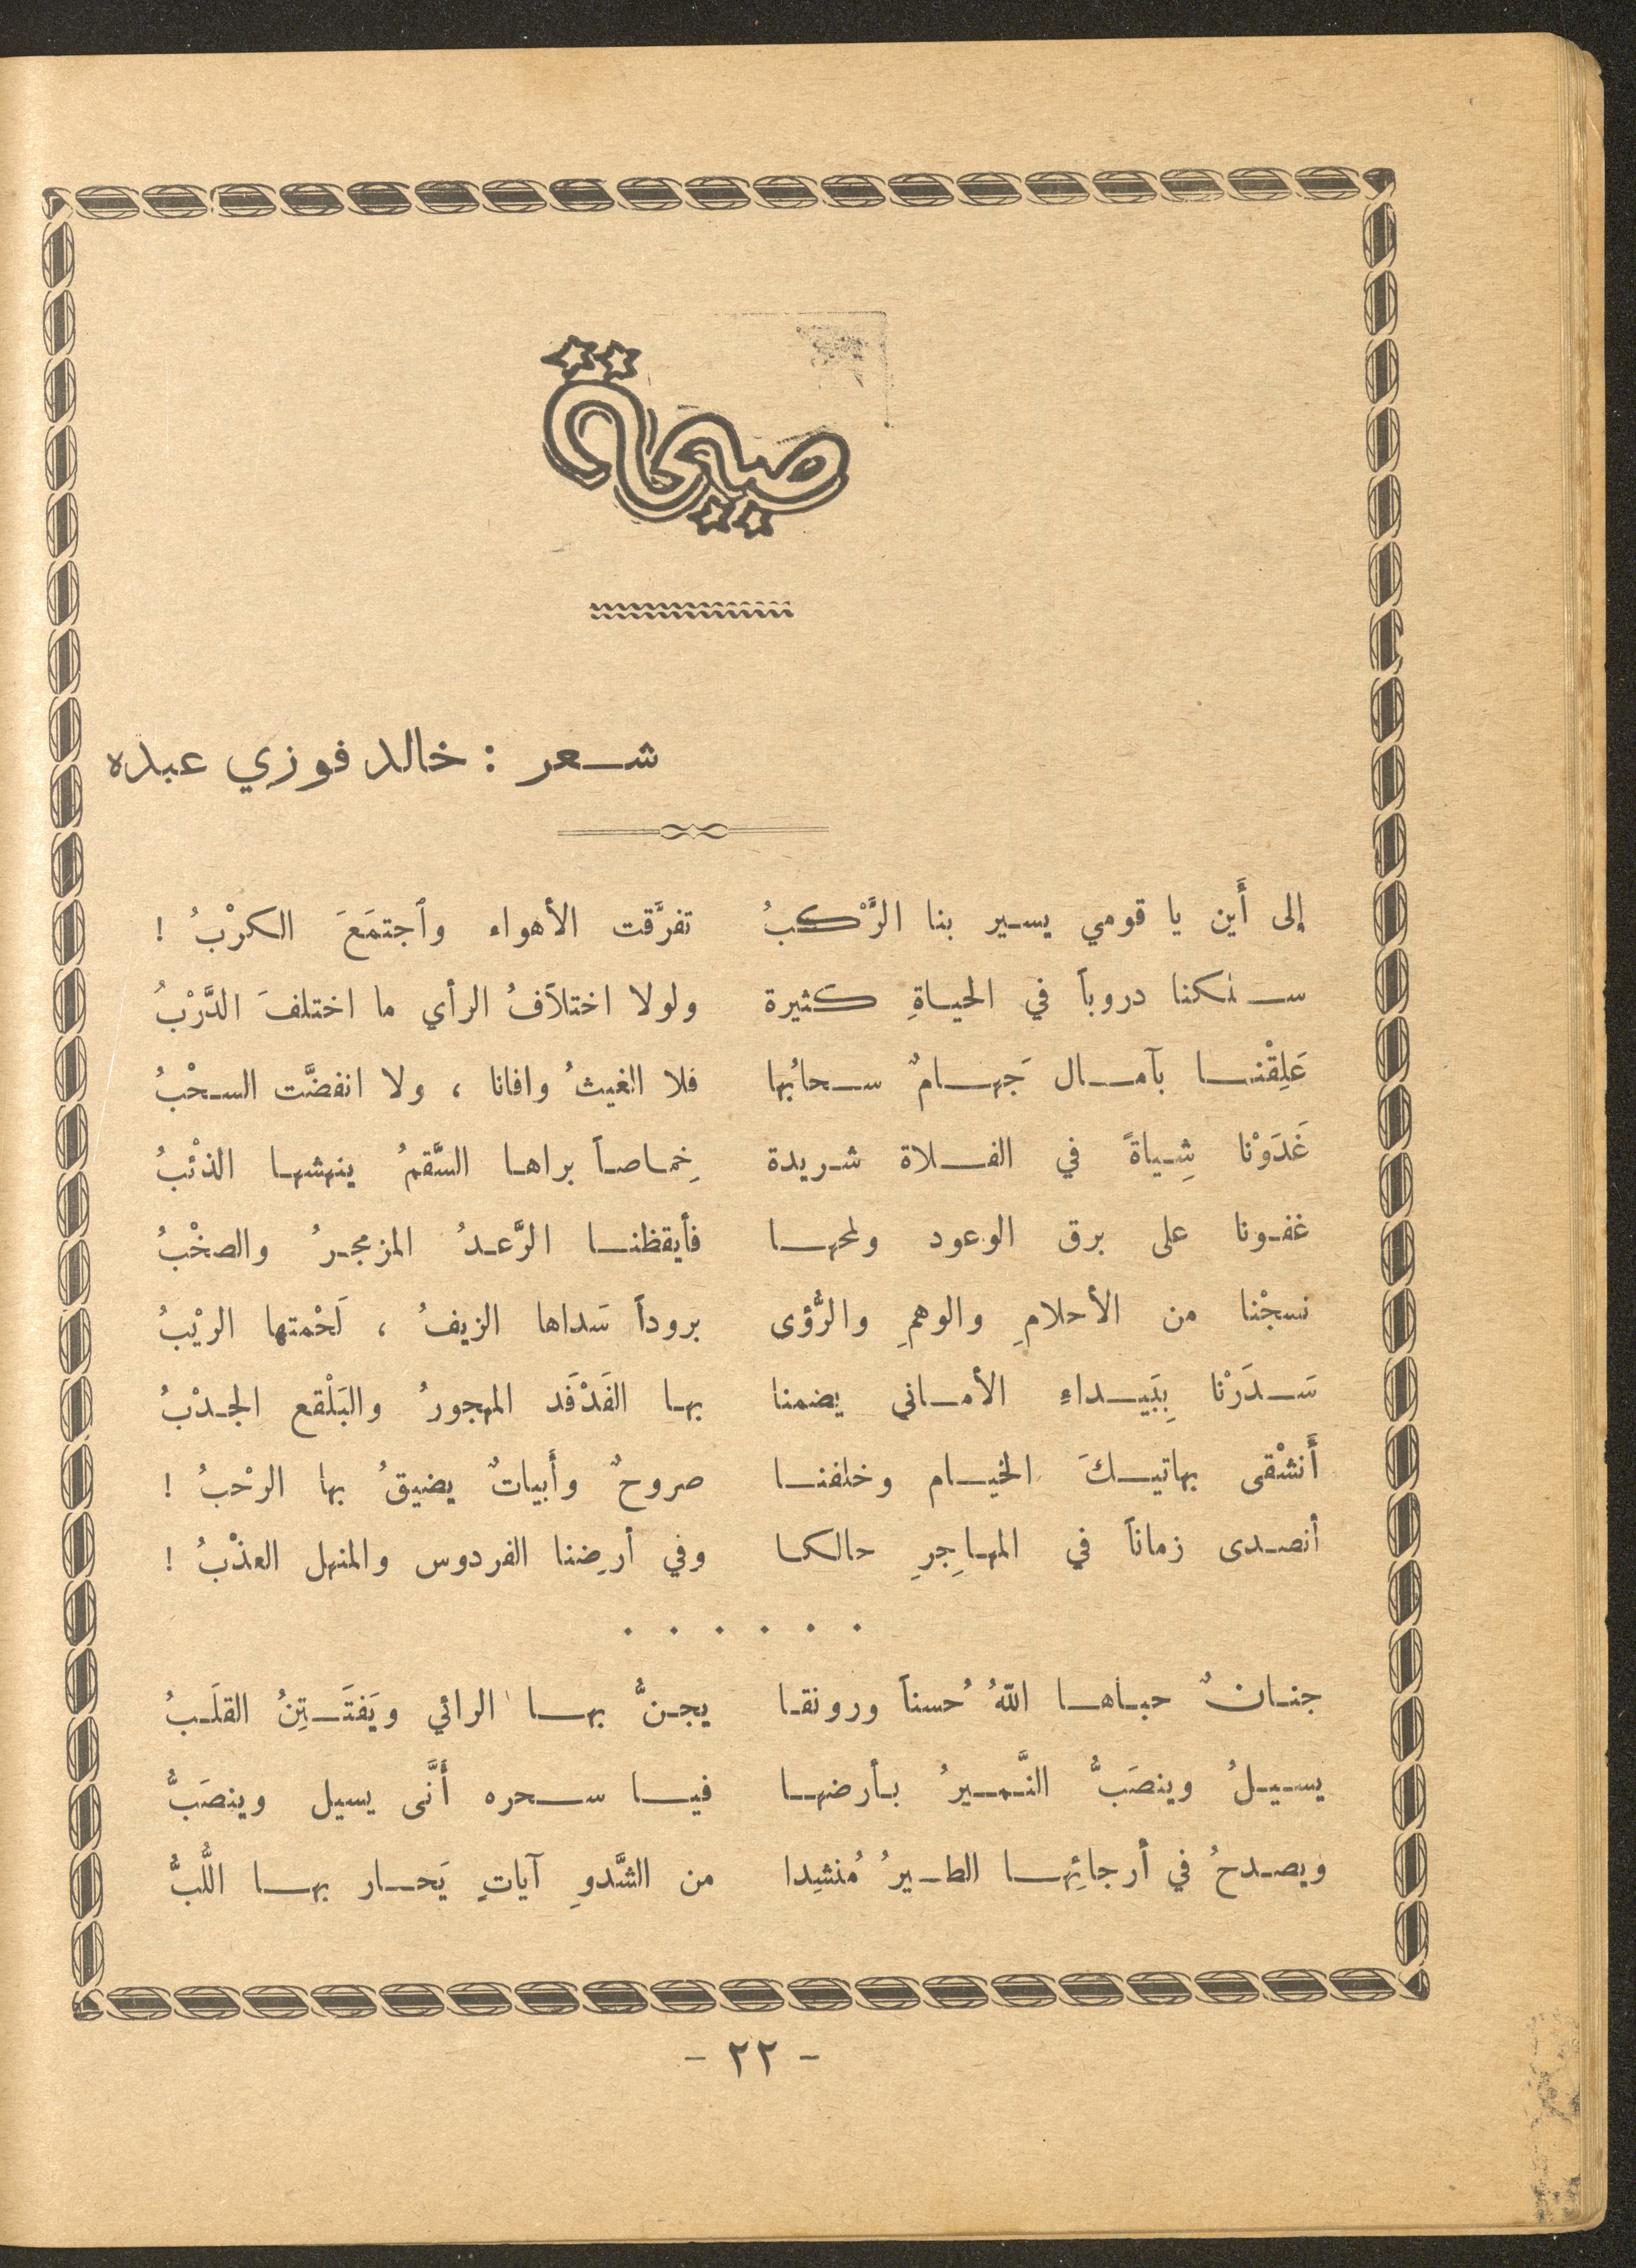 صيحة
شعر : خالد فوزي عبده
إلى أَين يا قومي يسير بنا الرَّكبُ تفرَّقت الأهواء وٱجتمَعَ الكرْبُ !
سلكنا دروباً في الحياةِ كثيرة ولولا اختلاَفُ الرأي ما اختلفَ الدَّرْبُ
عَلِقْنا بآمال جَهامٌ سحابُها فلا الغيثُ وافانا ، ولا انفضَّت السحْبُ
غَدَوْنا شِياةً في الفلاة شريدة خِماصاً براها السَّقمُ ينهشها الذئْبُ
غفونا على برق الوعود ولمحها فأيقظنا الرَّعدُ المزمجرُ والصخْبُ
نسجْنا من الأحلامِ والوهمِ والرُّؤى بروداً سَداها الزيفُ ، لَحْمتها الريْبُ
سَدَرْنا بِبَيداءِ الأماني يضمنا بها الفَدْفَد المهجورُ والبَلْقع الجدْبُ
أَنشْقى بهاتيكَ الخيام وخلفنا صروحٌ وأَبياتٌ يضيقُ بها الرحْبُ !
أنصدى زماناً في المهاجِرِ حالكا وفي أرضِنا الفردوس والمنهل العذْبُ !
. . . . . .
جنانٌ حباها اللّهُ حُسناً ورونقا يجنُّ بها الرائي ويَفتَتِنُ القلَبُ
يسيلُ وينصَبُّ النَّميرُ بأرضها فيا سحره أَنَّى يسيل وينصَبُّ
ويصدحُ في أرجائِها الطيرُ مُنشِدا من الشَّدوِ آياتٍ يَحار بها اللُّبُّ
- ٢٢ -